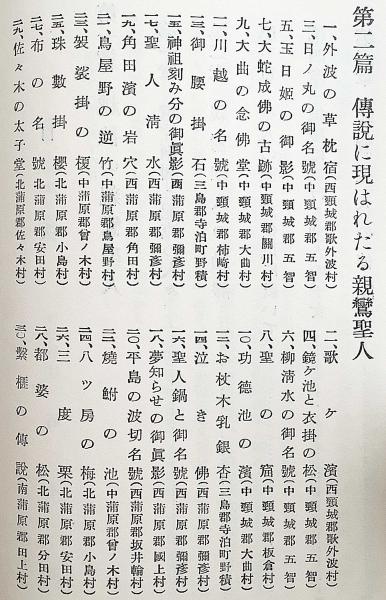 第二篇 傳說に現はれたる親鸞聖人
一、外波の草枕宿(西頸城郡歌外波村)
二、歌ケ濱(西頸城郡歌外波村)
三、日ノ丸の御名號(中頸城郡五智)
四、鏡ケ池と衣掛の松(中頸城郡五智)
五、玉日姬の御影(中頸城郡五智)
六、柳淸水の御名號(中頸城郡五智)
七、大蛇成佛の古跡(中頸城郡關川村)
八、聖の窟(中頸城郡板倉村)
九、大曲の念佛堂(中頸城郡大曲村)
一〇、功德池の濱(中頸城郡大曲村)
一一、川越の名號(中頸城郡柿崎村)
一二、お杖木乳銀杏(三島郡寺泊町野積)
一三、御腰掛石(三島郡寺泊町野積)
一四、泣き佛(西蒲原郡彌彥村)
一五、神祖刻み分の御眞影(西蒲原郡彌彥村)
一六、聖人鍋と御名號(西蒲原郡彌彥村)
一七、聖人淸水(西蒲原郡彌彥村)
一八、夢知らせの御眞影(西蒲原郡國上村)
一九、角田濱の岩穴(西蒲原郡角田村)
二〇、平島の波切名號(西蒲原郡坂井輪村)
二一、鳥屋野の逆竹(中蒲原郡鳥屋野村)
二二、燒鮒の池(中蒲原郡曾ノ木村)
二三、袈裟掛の榎(中蒲原郡曾ノ木村)
二四、八ツ房の梅(北蒲原郡小島村)
二五、珠數掛櫻(北蒲原郡小島村)
二六、三度栗(北蒲原郡安田村)
二七、布の名號(北蒲原郡安田村)
二八、都婆の松(北蒲原郡分田村)
二九、佐々木の太子堂(北蒲原郡佐々木村)
三〇、繫榧の傳說(南蒲原郡田上村)